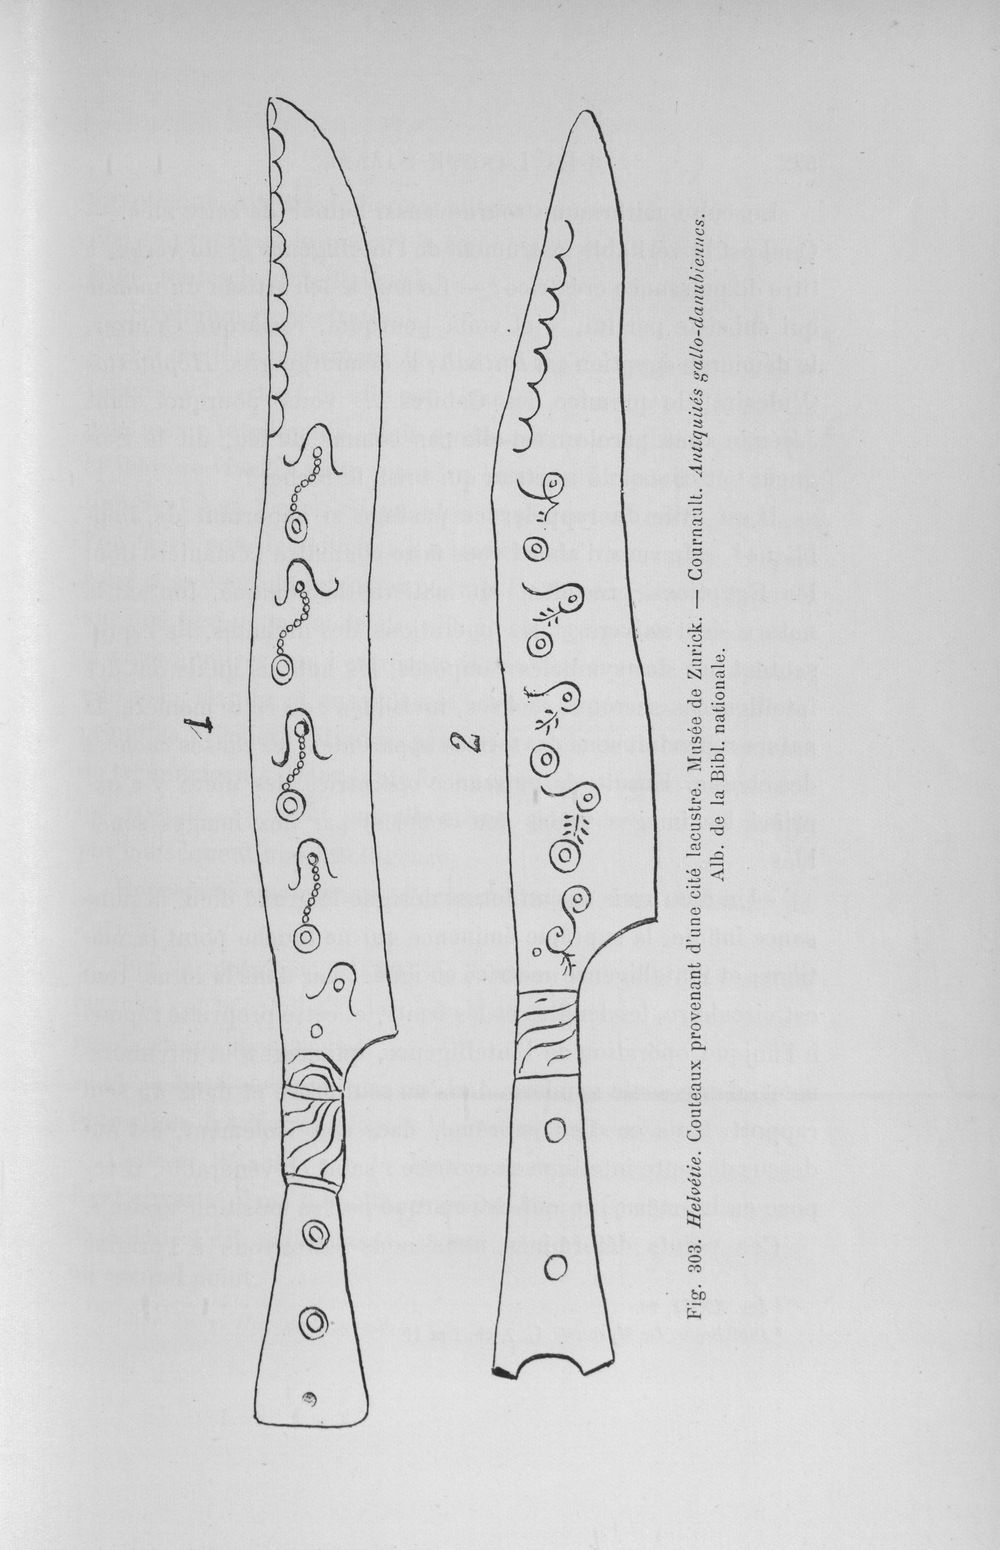 1
2
Fig. 303. Helvétie. Couteaux provenant d'une cité lacustre. Musée de Zurick. — Cournault. Antiquités gallo-danubiennes.
Alb. de la Bibl. nationale.